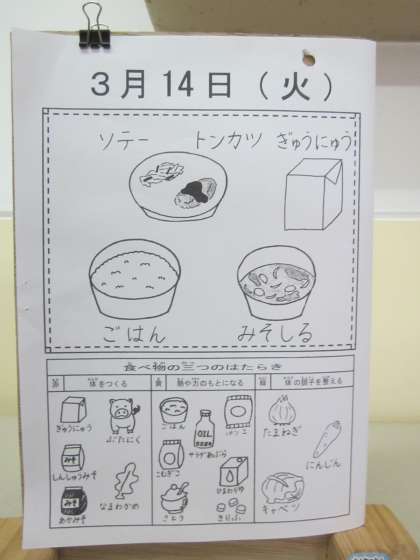 3月14日(火)
ソテー トンカツ ぎゅうにゅう
ごはん みそしる
食べ物の三つのはたらき
赤 体をつくる 黄 熱や力のもとになる 緑 体の調子を整える
ぎゅうにゅう
ぶたにく
しんしゅうみそ
みそ
あかみそ
なまわかめ
ごはん
OIL
サラダあぶら
パンこ
こむぎこ
さとう
たまねぎ
にんじん
キャベツ